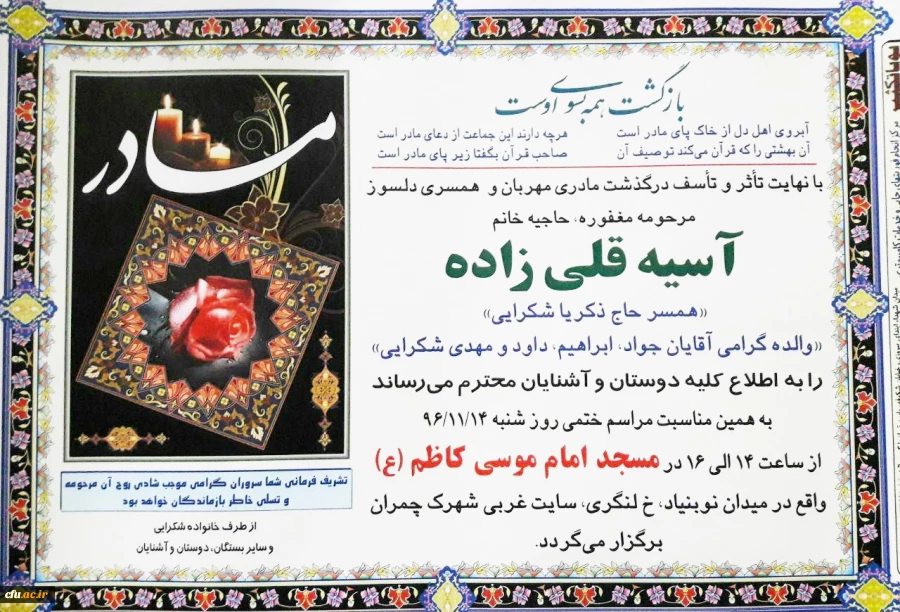 بازگشت همه بسوی اوست
آبروی اهل دل از خاک پای مادر است
هرچه دارند این جماعت از دعای مادر است
آن بهشتی را که قرآن می‌کند توصیف آن
صاحب قرآن بگفتا زیر پای مادر است
با نهایت تأثر و تأسف درگذشت مادری مهربان و همسری دلسوز
مرحومه مغفوره، حاجیه خانم
آسیه قلی زاده
«همسر حاج ذکریا شکرایی»
«والده گرامی آقایان جواد، ابراهیم، داود و مهدی شکرایی»
را به اطلاع کلیه دوستان و آشنایان محترم می‌رساند
به همین مناسبت مراسم ختمی روز شنبه ۹۶/۱۱/۱۴
از ساعت ۱۴ الی ۱۶ در مسجد امام موسی کاظم (ع)
واقع در میدان نوبنیاد، خ لنگری، سایت غربی شهرک چمران
برگزار می‌گردد.
مادر
تشریف فرمائی شما سروران گرامی موجب شادی روح آن مرحومه
و تسلی خاطر بازماندگان خواهد بود
از طرف خانواده شکرایی
و سایر بستگان، دوستان و آشنایان
cfu.ac.ir